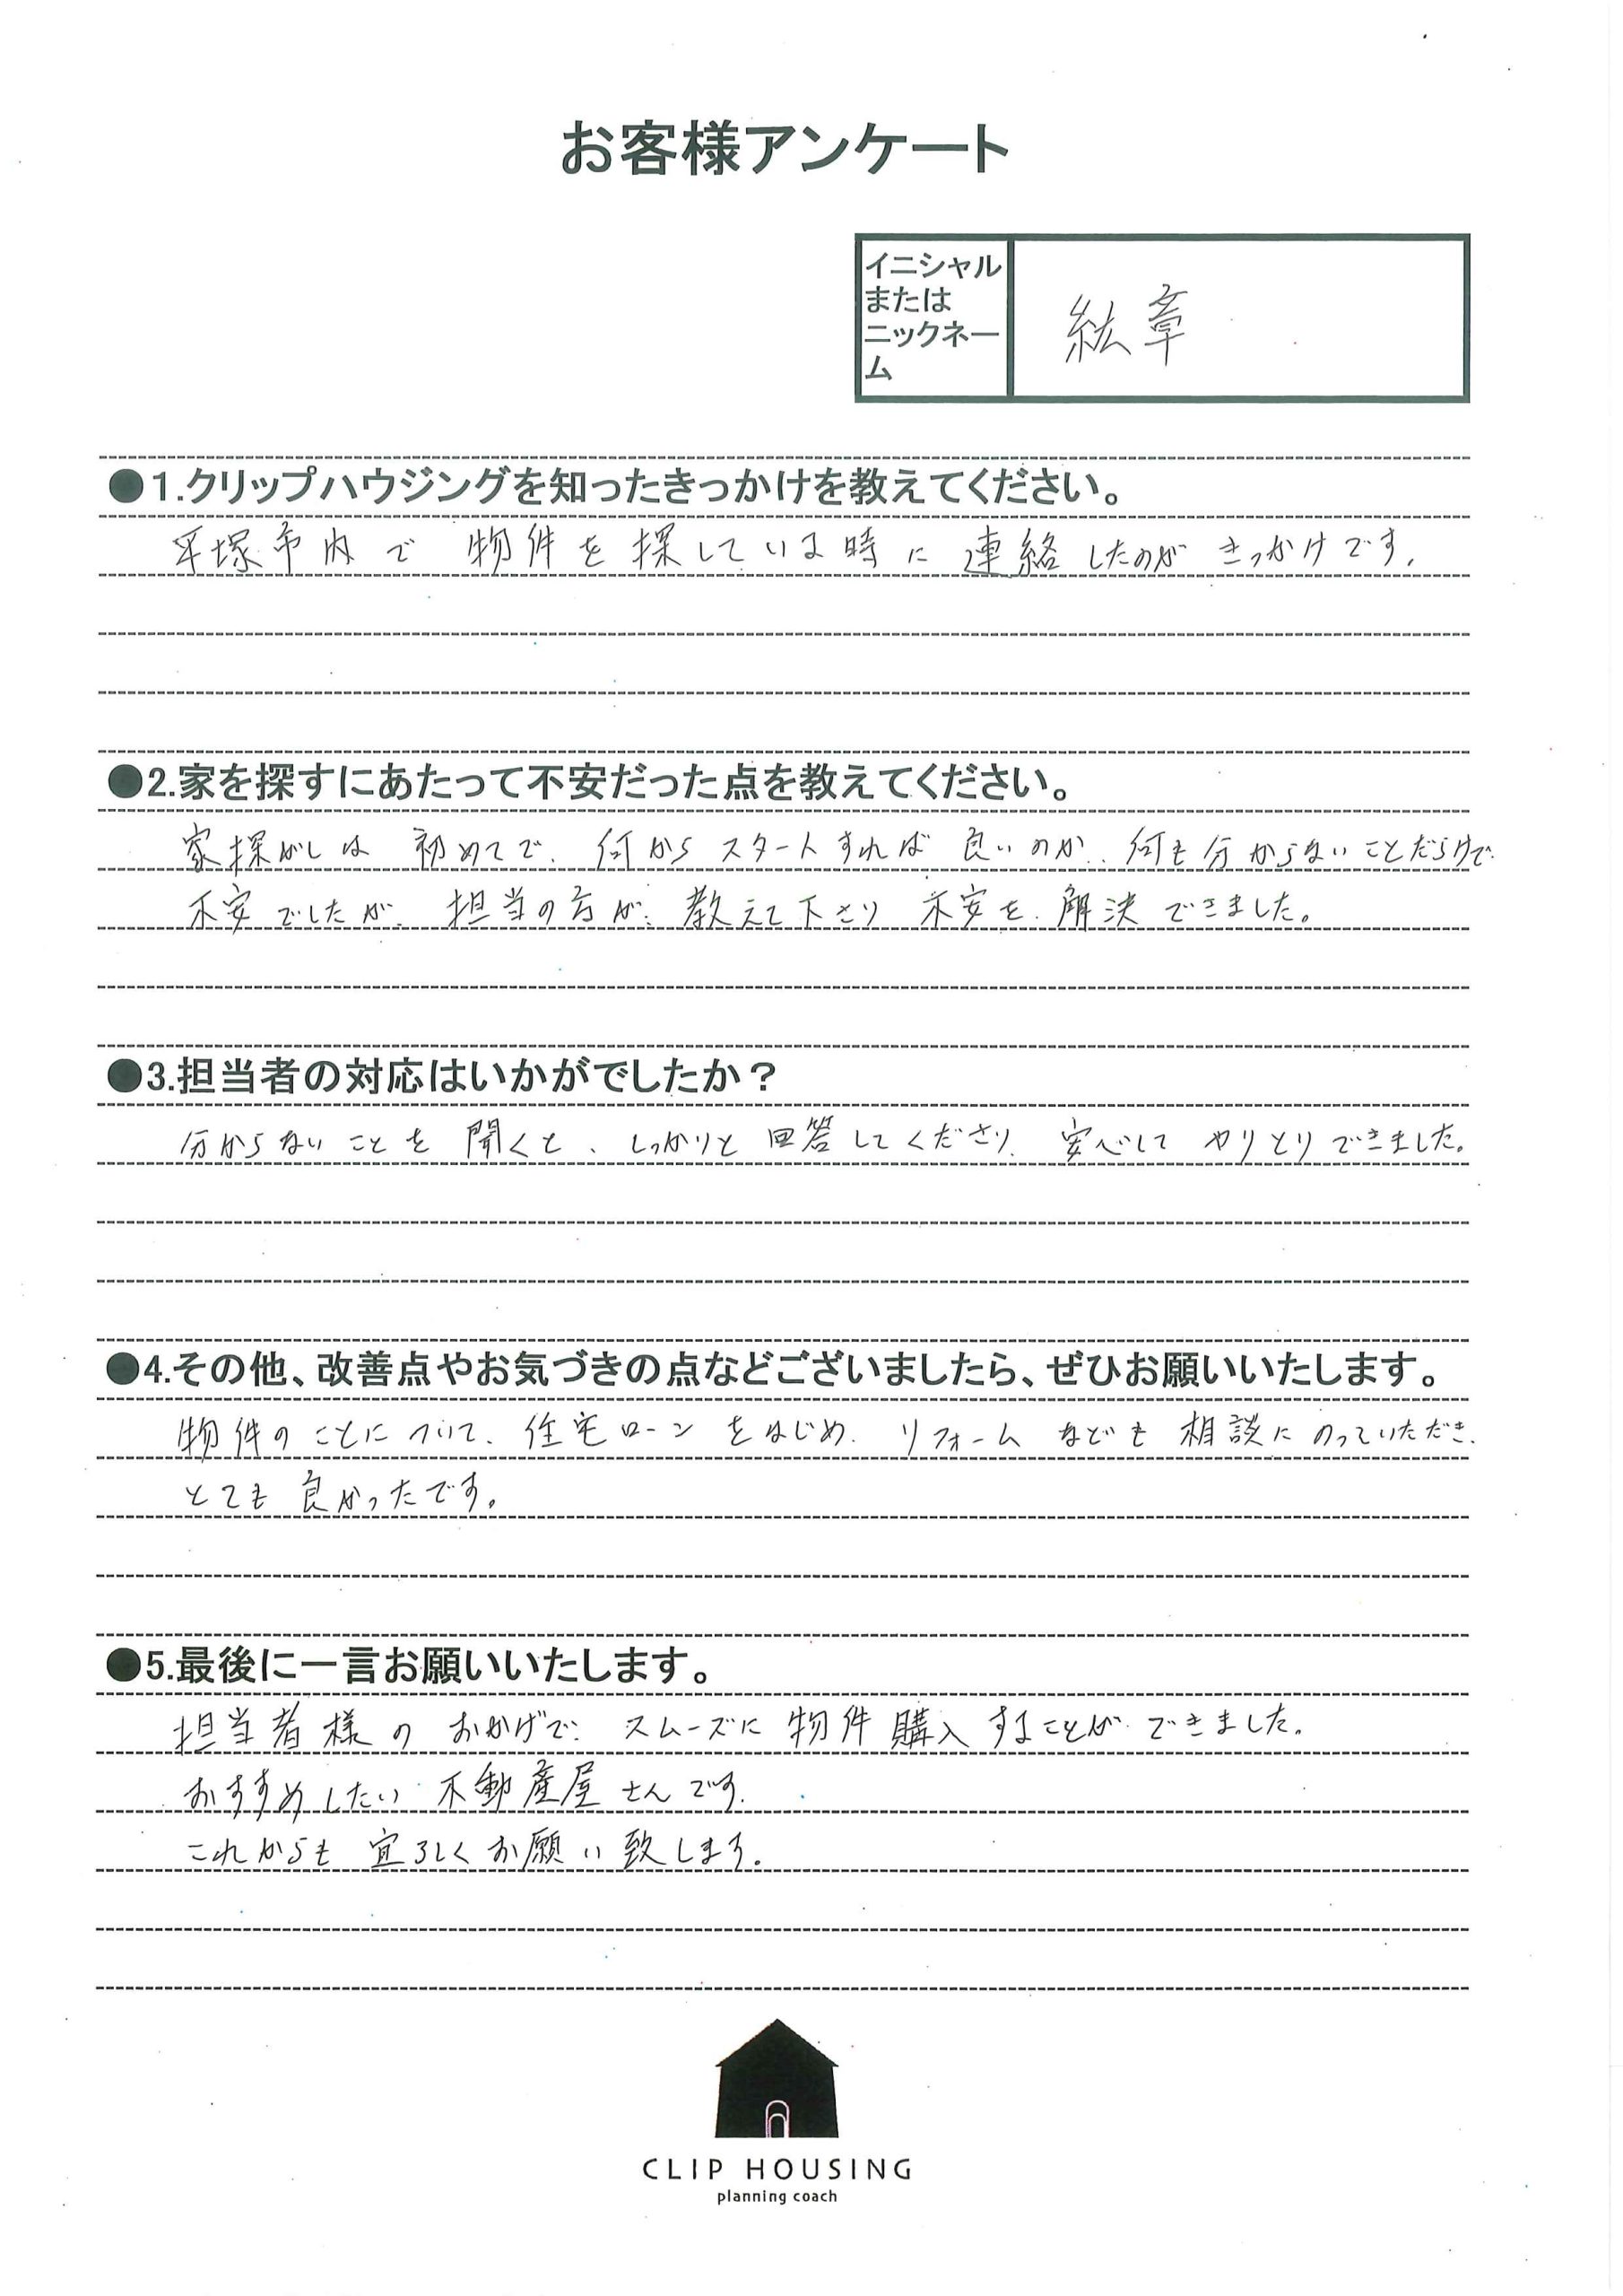 お客様アンケート
イニシャル
または
ニックネー
ム
紘章
●1.クリップハウジングを知ったきっかけを教えてください。
平塚市内で 物件を探している時に連絡したのが きっかけです。
●2.家を探すにあたって不安だった点を教えてください。
家探がしは 初めてで、何からスタートすれば 良いのか、何も分からないことだらけで
不安でしたが、担当の方が、教えて下さり 不安を解決できました。
●3.担当者の対応はいかがでしたか？
分からないことを 聞くと、しっかりと 回答してくださり、安心して やりとりできました。
●4.その他、改善点やお気づきの点などございましたら、ぜひお願いいたします。
物件のことについて、住宅ローンをはじめ、リフォーム なども 相談にのっていただき、
とても 良かったです。
●5.最後に一言お願いいたします。
担当者様の おかげで、スムーズに 物件購入することが できました。
おすすめしたい 不動産屋さんです。
これからも 宜ろしくお願い致します。
CLIP HOUSING
planning coach